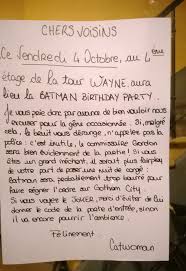 CHERS VOISINS
Ce Vendredi 4 Octobre, au 4ème
étage de la tour WAYNE, aura
lieu la BATMAN BIRTHDAY PARTY
Je vous prie donc par avance de bien vouloir nous
excuser pour la gêne occasionnée. Si, malgré
cela, le bruit vous dérange, n'appelez pas la
police : c'est inutile, le commissaire Gordon
sera bien évidemment de la partie ! Si vous
êtes un grand méchant, il sera plus fairplay
de votre part de poser une nuit de congé :
Batman sera probablement trop bourré pour
faire régner l'ordre sur Gotham City.
Si vous voyez le JOKER, merci d'éviter de lui
donner le code de la porte d'entrée, sinon
il va encore pourrir l'ambiance.
Félinement
Catwoman